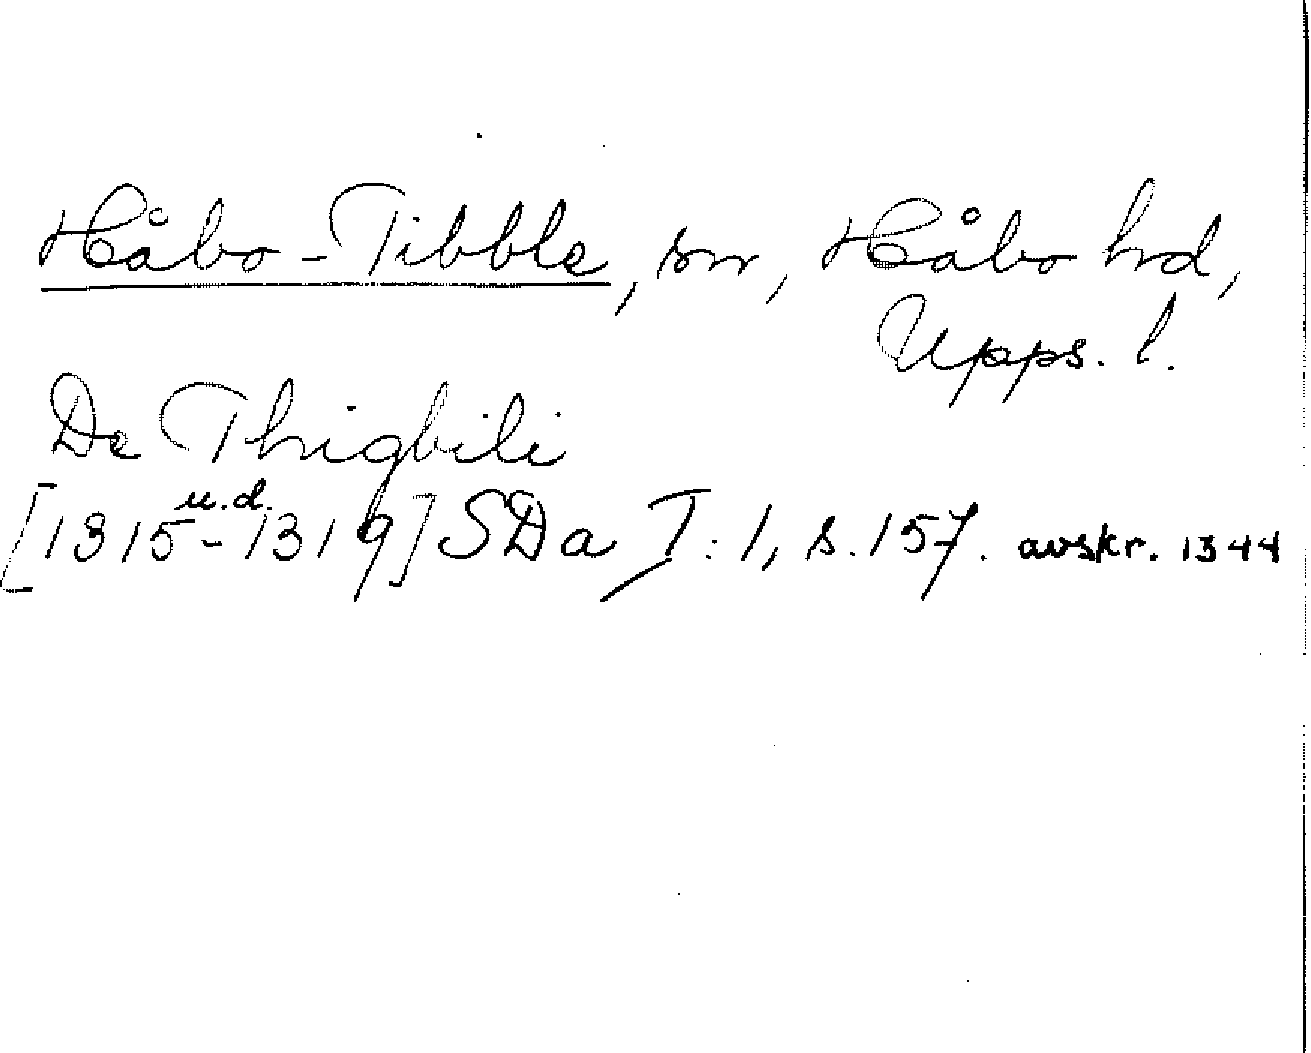 Håbo-Tibble, sn, Håbo hd,
Upps. l.
De Thigbili
u.d.
[1315-1319] SDa I:1, s.157. avskr. 1344